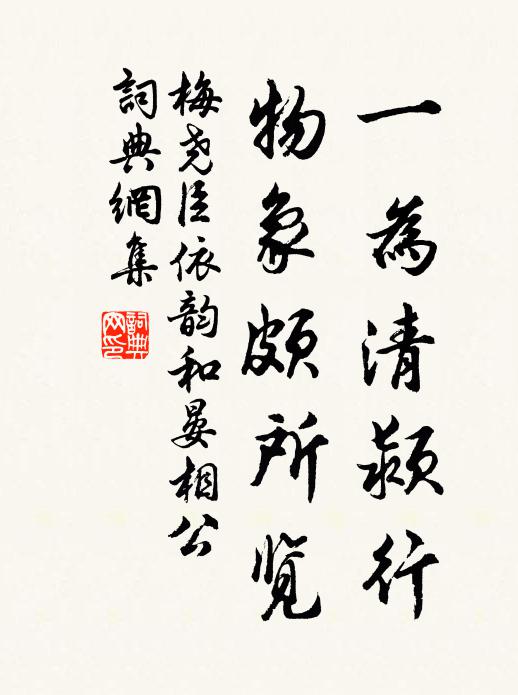 一為清潁行
物象頗所覽
梅堯臣依韵和晏相公
詞典網集
詞典
网印